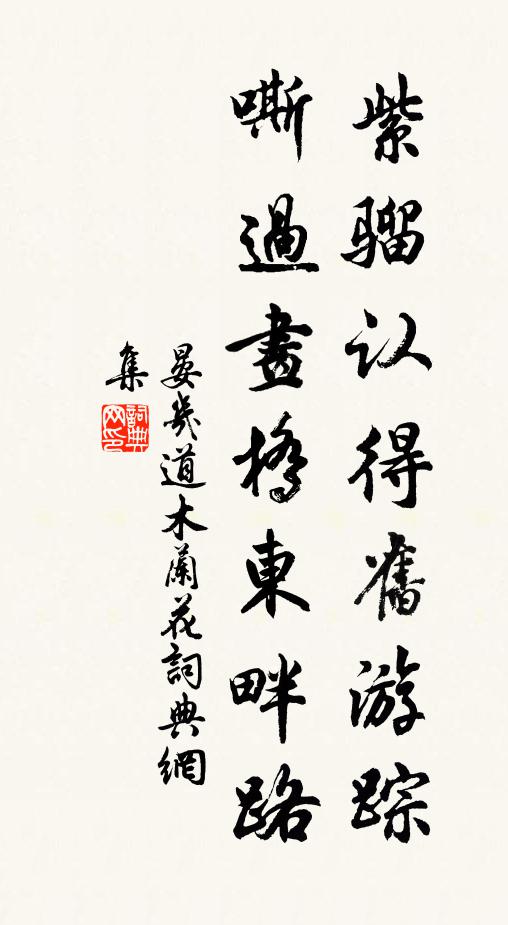 紫骝认得舊游踪
嘶過畫橋東畔路
晏幾道木蘭花詞典網
集
詞典网印